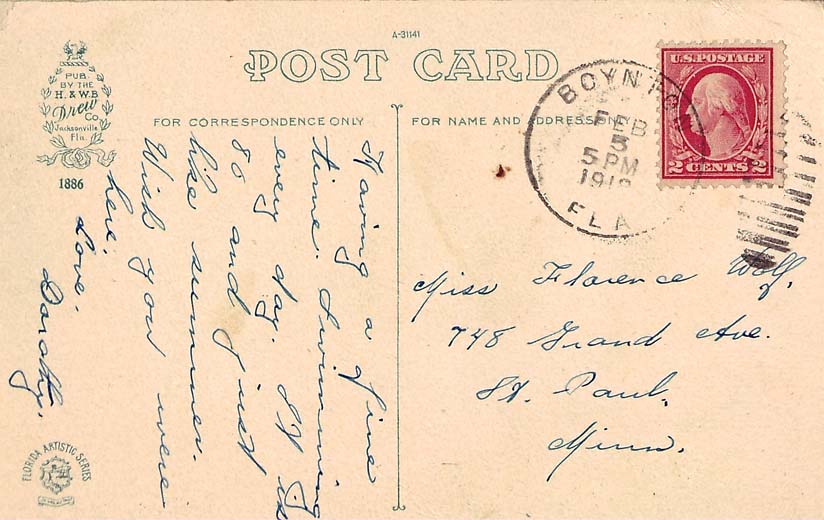 A-31141
POST CARD
PUB.
BY THE
H. & W.B
Drew
Co
Jacksonville
Fla.
1886
FOR CORRESPONDENCE ONLY
FOR NAME AND ADDRESS ONLY
U.S. POSTAGE
2 CENTS 2
BOYNTON
FEB
5 PM
FLA
Having a fine
time. Swimming
every day. It is
80 and just
like summer.
Wish you were
here.
Love.
Dorothy.
Miss Florence Wolf.
748 Grand Ave.
St. Paul.
Minn.
FLORIDA ARTISTIC SERIES